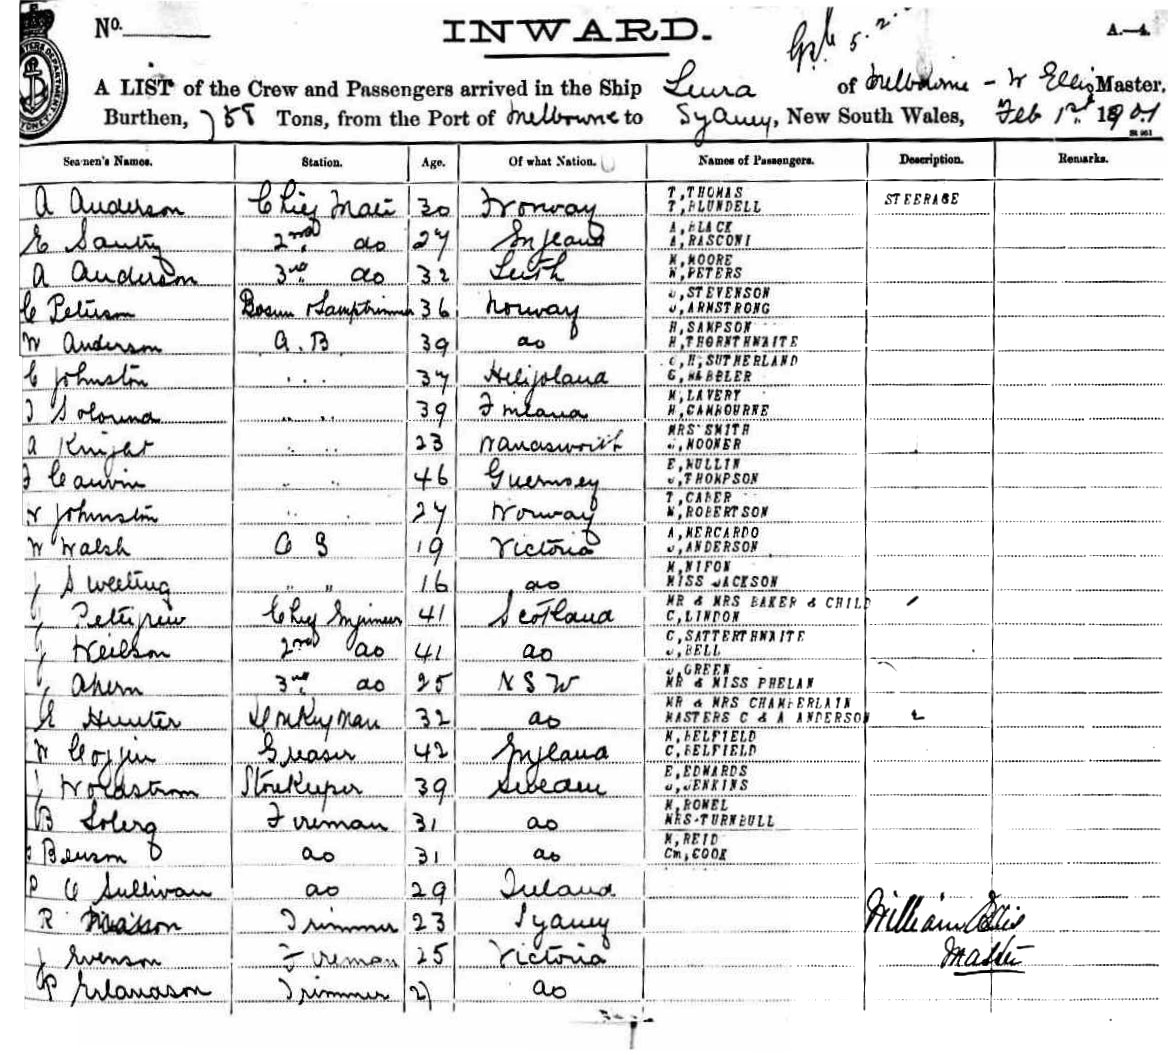 No.
INWARD.
A.—4.
A LIST of the Crew and Passengers arrived in the Ship Leura of Melbourne - W Ellis Master,
Burthen, 788 Tons, from the Port of Melbourne to Sydney, New South Wales, Feb 1st 1901
Seamen's Names. Station. Age. Of what Nation. Names of Passengers. Description. Remarks.
A Anderson Chief Mate 30 Norway T, THOMAS STEERAGE
T, BLUNDELL
E Santry 2nd do 27 England A, BLACK
A, RASCONI
A Anderson 3rd do 32 Leith M, MOORE
W, PETERS
C Peterson Bosun & Lamptrimmer 36 Norway J, STEVENSON
J, ARMSTRONG
W Anderson A.B 39 do H, SAMPSON
H, THORNTHWAITE
C Johnston " " 37 Heligoland C, H, SUTHERLAND
G,
" " 39 Finland M, LAVERY
H, CAMBOURNE
A Knight " " 23 Wandsworth MRS SMITH
J, MOONER
F Cauvin " " 46 Guernsey E, MULLIN
J, THOMPSON
Johnston " " 27 Norway T, CABER
W, ROBERTSON
W Walsh O S 19 Victoria A, MERCARDO
J, ANDERSON
J Sweeting " " 16 do M, NIFON
MISS JACKSON
J Petigrew Chief Engineer 41 Scotland MR & MRS BAKER & CHILD
C, LINDON
J Neilson 2nd do 41 do C, SATTERTHWAITE
J, BELL
J Ahern 3rd do 25 N S W J, GREEN
MR & MISS PHELAN
E Hunter Donkeyman 32 do MR & MRS CHAMBERLAIN
MASTERS C & A ANDERSON
W Coggin Greaser 42 England M, BELFIELD
C, BELFIELD
J Woldstrom Storekeeper 39 Sweden E, EDWARDS
J, JENKINS
B Soberg Fireman 31 do M, ROWEL
MRS TURNBULL
Benson do 31 do M, REID
Cm, COOK
P O Sullivan do 29 Ireland
R Masson Trimmer 23 Sydney William Ellis
J Evenson Fireman 25 Victoria Master
P Erlandson Trimmer 21 do